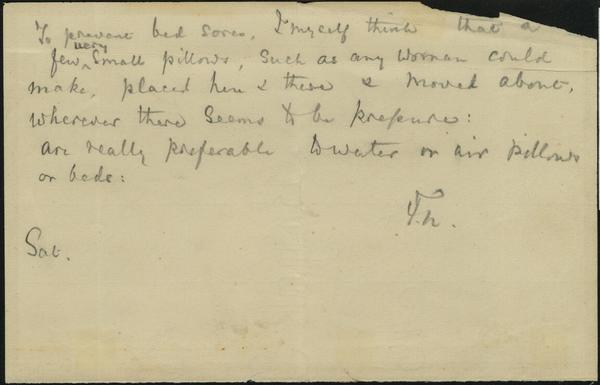 To prevent bed sores, I myself think that a
few very small pillows, such as any woman could
make, placed here & there & moved about,
wherever there seems to be pressure:
are really preferable to water or air pillows
or beds:
F.N.
Sat.